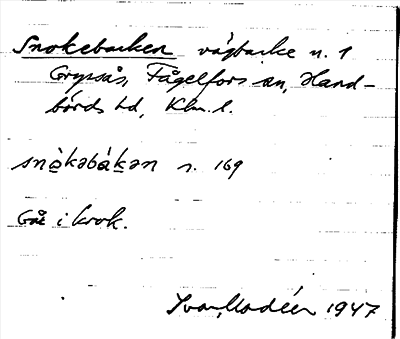 Snokebacken vägbacke n. 1
Gryssås, Fågelfors sn, Hand-
börds hd, Klm. l.
snò̀kəbákən s. 169
Går i krok.
Ivar Modéer 1947